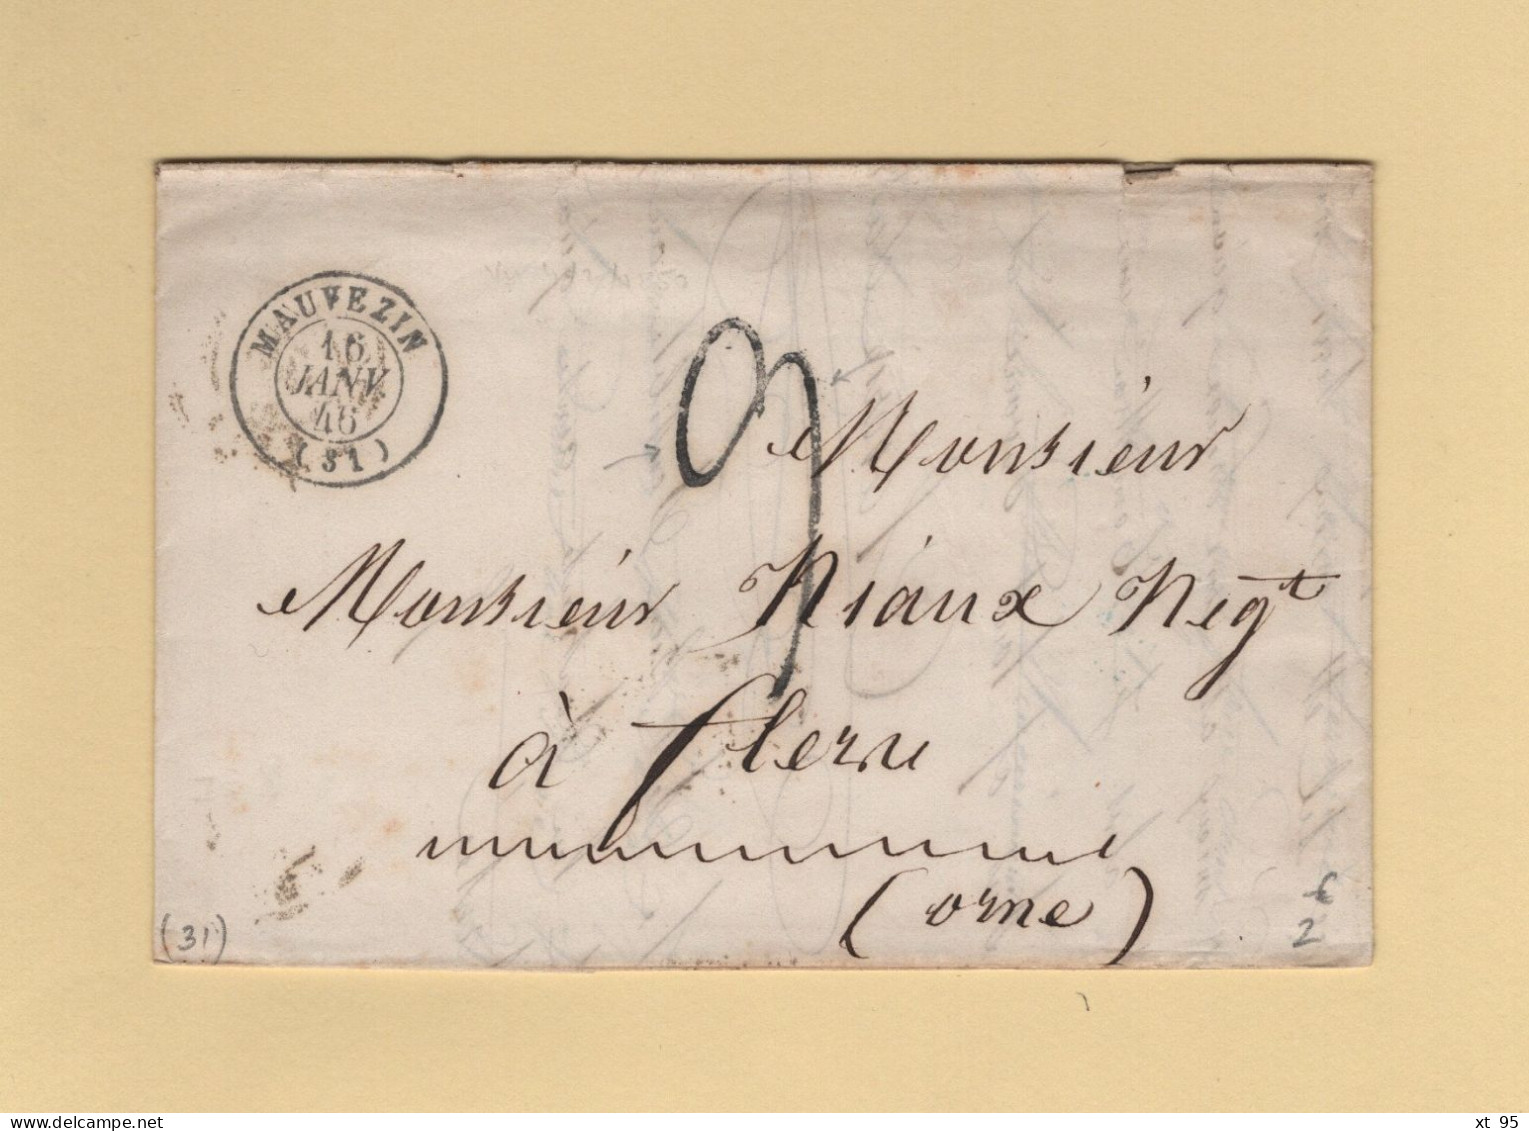 MAUVEZIN
16
JANV
46
(31)
9
Monsieur
Monsieur Niaux Negt
à flers
(orne)
(31)
2
www.delcampe.net
xt 95